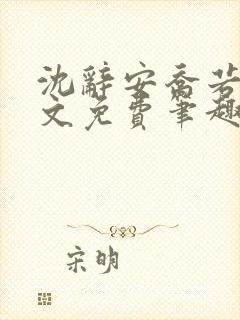 沈辞安乔若
文免费笔趣
宋明